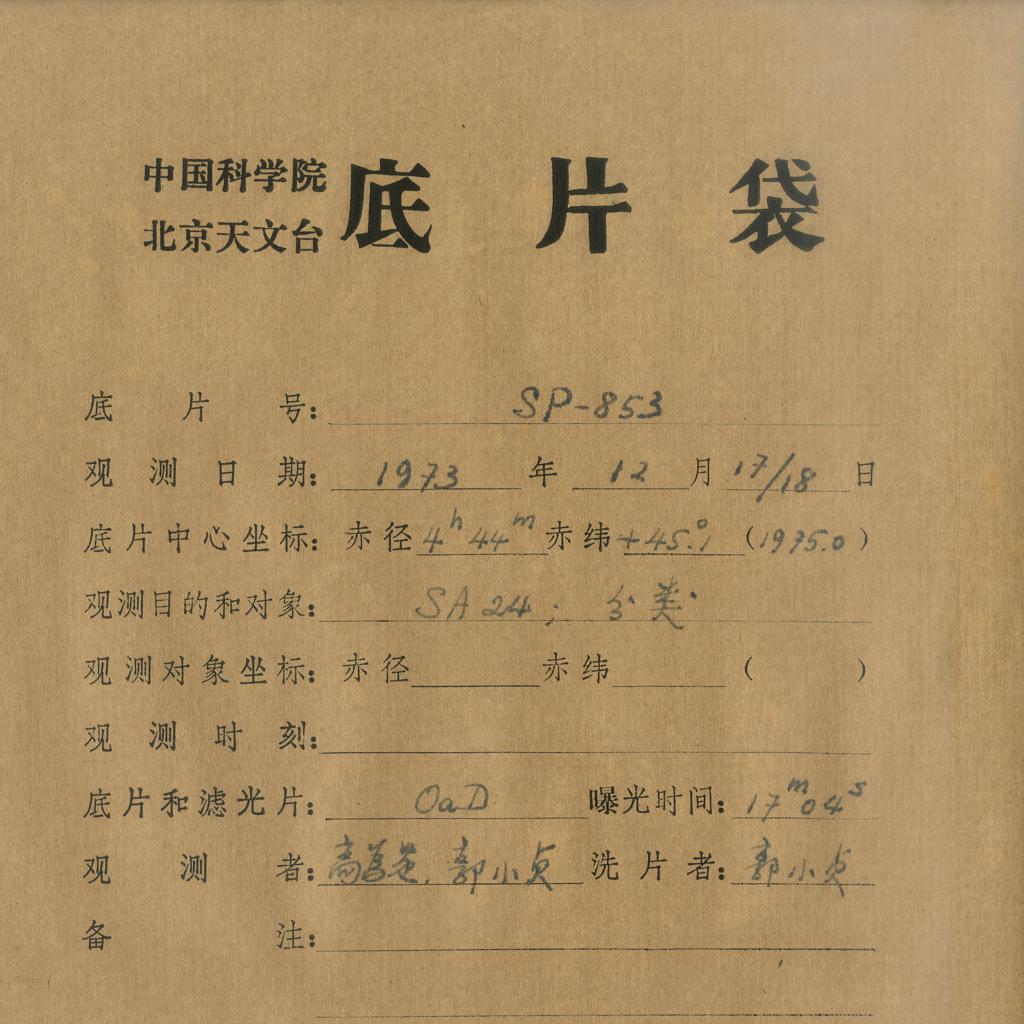 中国科学院
北京天文台
底片袋
底片号: SP-853
观测日期: 1973 年 12 月 17/18 日
底片中心坐标: 赤径 4h 44m 赤纬 +45.°1 (1975.0)
观测目的和对象: SA 24; 分类
观测对象坐标: 赤径 赤纬 ( )
观测时刻:
底片和滤光片: OaD 曝光时间: 17m 04s
观测者: 郭小贞 洗片者: 郭小贞
备注: